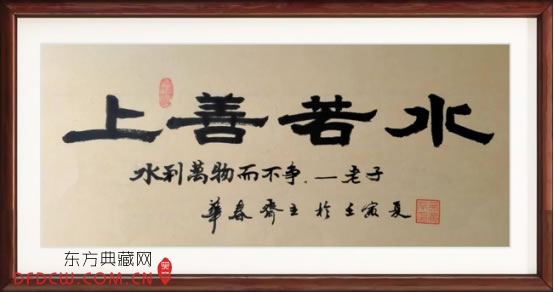 上善若水
水利萬物而不争.—老子
華春齋主於壬寅夏
东方典藏网
DFDCW.COM.CN